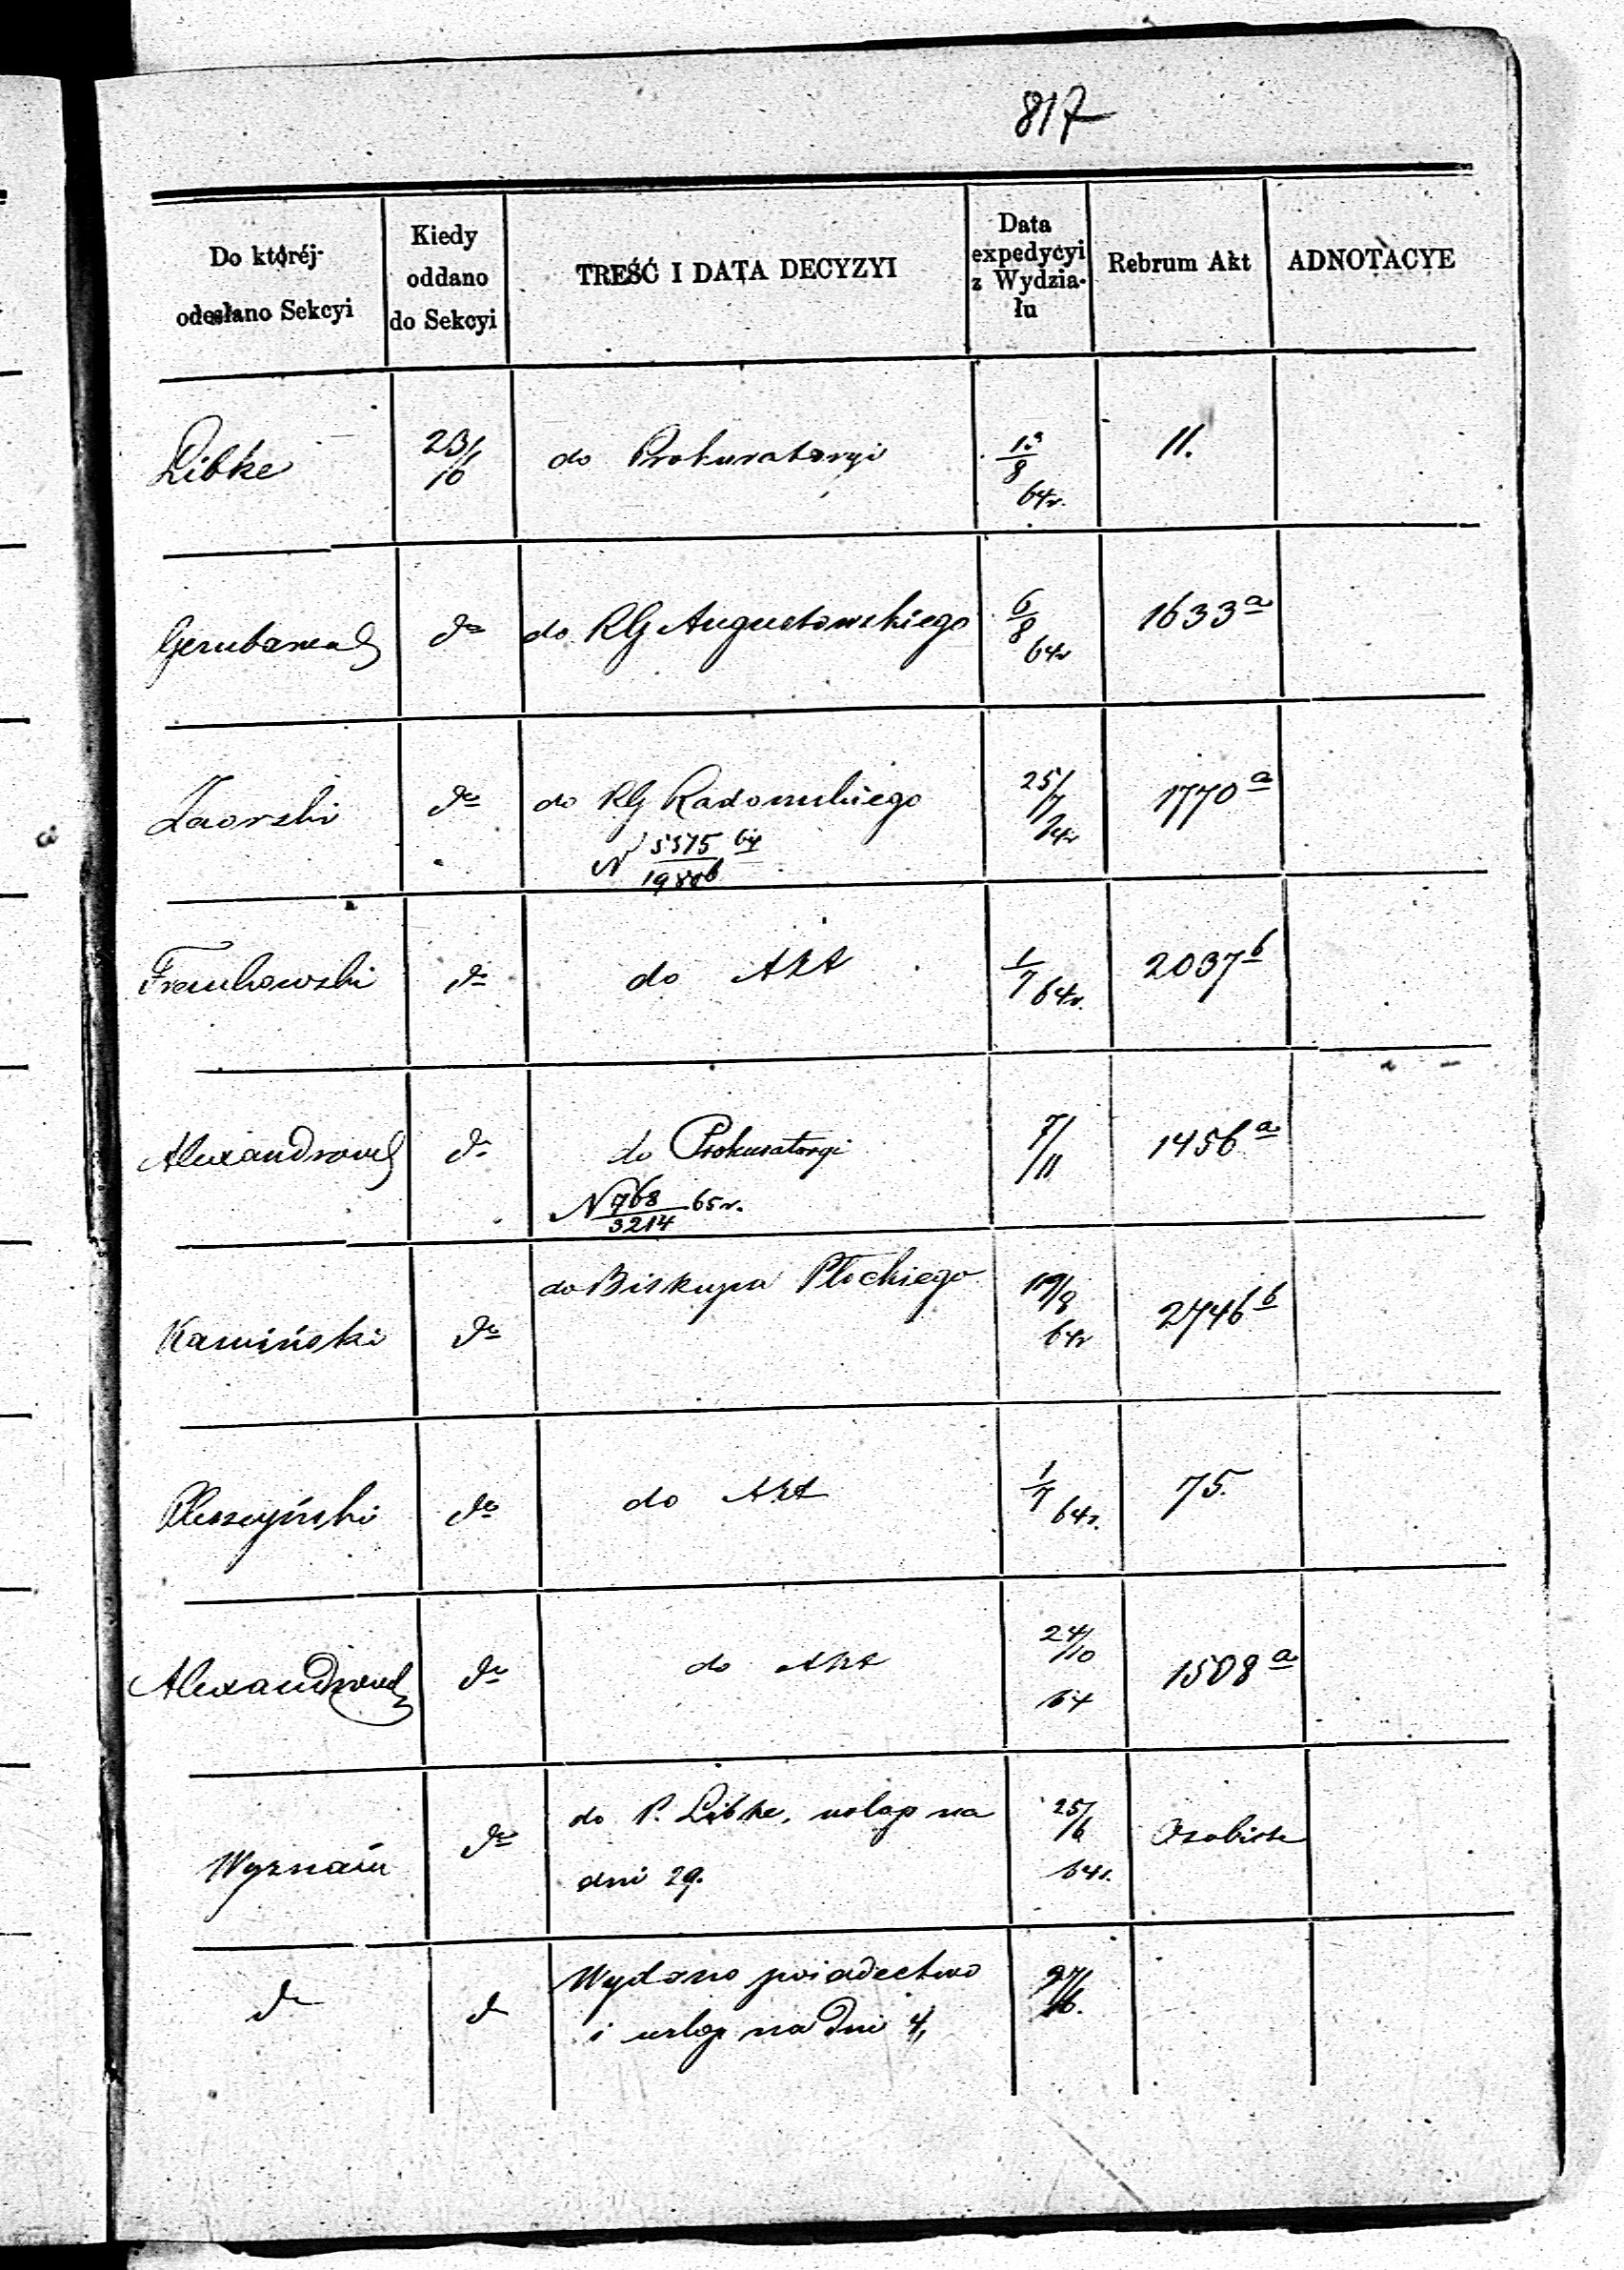 817
Do któréj odesłano Sekcyi
Kiedy oddano do Sekcyi
TREŚĆ I DATA DECYZYI
Data expedycyi z Wydzia-łu
Rebrum Akt
ADNOTACYE
Libke 23/6 do Prokuratoryi 13/8 64r. 11.
do do RG Augustowskiego 6/8 64r 1633a
Zaorski do do RG Radomskiego 25/7 64r 1770a
N 64
do do Akt 1/7 64r. 2037b
Alexandrowicz do do Prokuratoryi 7/11 1456a
N 768/3214 65r.
Kamiński do do Biskupa Płockiego 19/8 64r 2746b
Pleszczyński do do Akt 1/7 64r. 75.
Alexandrowicz do do Akt 24/10 64 1508a
Wyznań do do P. Libke, urlop na 25/6 64r. Osobiste
dni 29.
do do Wydano świadectwo 27/6.
i urlop na dni 4,